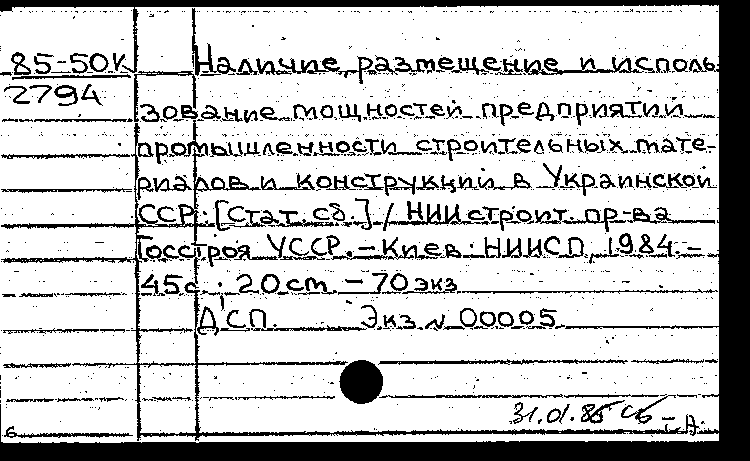 85-50К Наличие, размещение и исполь-
2794 зование мощностей предприятий
промышленности строительных мате-
риалов и конструкций в Украинской
ССР: [Стат. сб.] / НИИ строит. пр-ва
Госстроя УССР. – Киев: НИИСП, 1984. –
45с.; 20 cm – 70 экз
ДСП. Экз № 00005
31.01.85
6